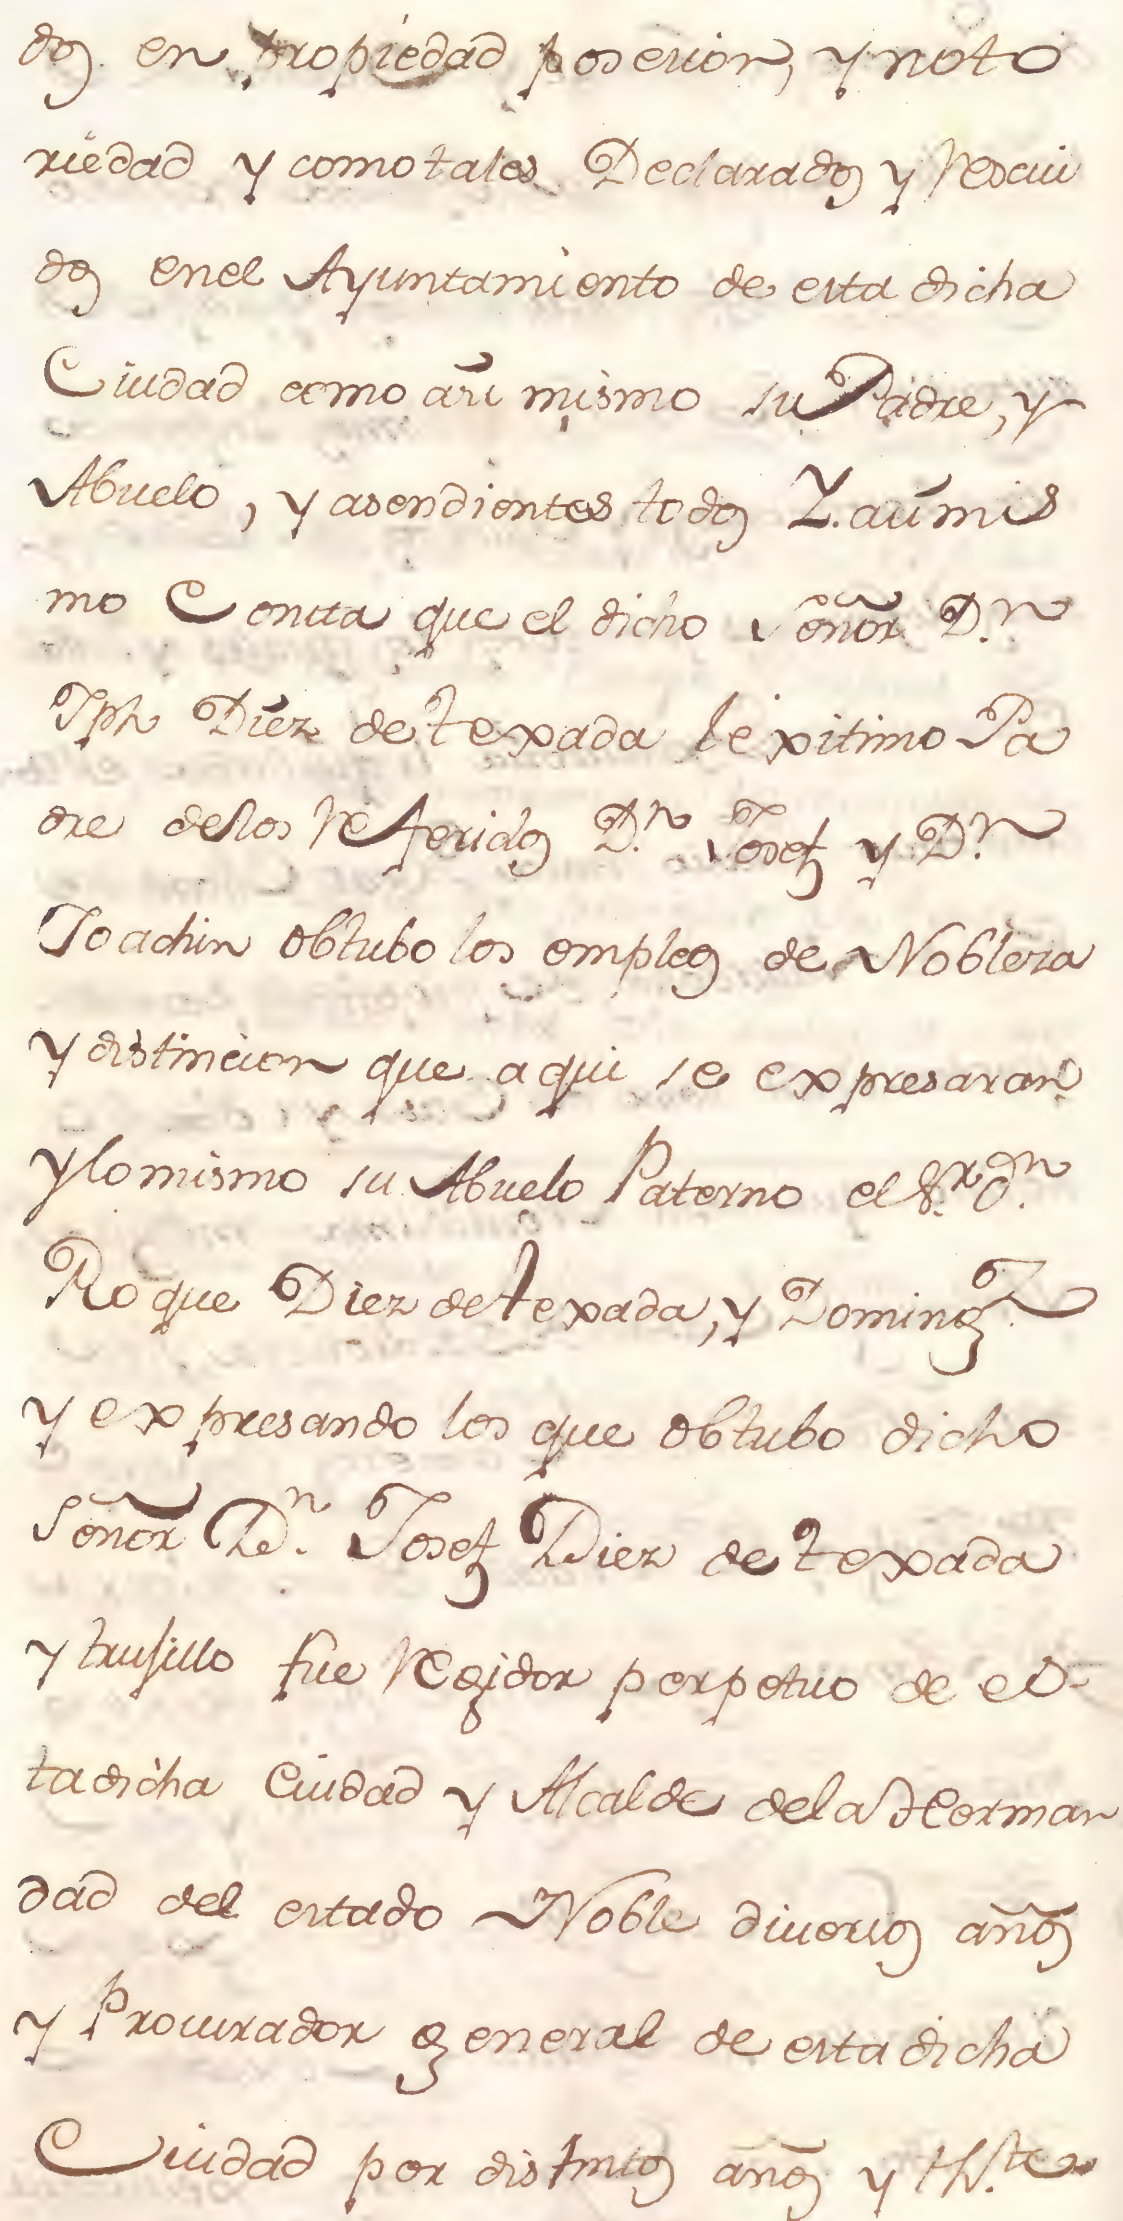 dos en propiedad posesion, y noto
riedad y como tales Declarados y Resciui
dos en el Ayuntamiento de esta dicha
Ciudad como asi mismo su Padre, y
Abuelo, y asendientes todos Y. asimis
mo Consta que el dicho señor D.n
Jph Diez de texada lexitimo Pa
dre de los Referidos D.n Josef y D.n
Joachin obtubo los empleos de Nobleza
y distincion que aqui se expresaran
y lo mismo su Abuelo Paterno el S.r d.n
Roque Diez de texada, y Doming.z
y expresando los que obtubo dicho
señor D.n Josef Diez de texada
y trusillo fue Regidor perpetuo de es-
ta dicha Ciudad y Alcalde de la Herman
dad del estado Noble diuersos años
y Procurador general de esta dicha
Ciudad por distintos años y th.te